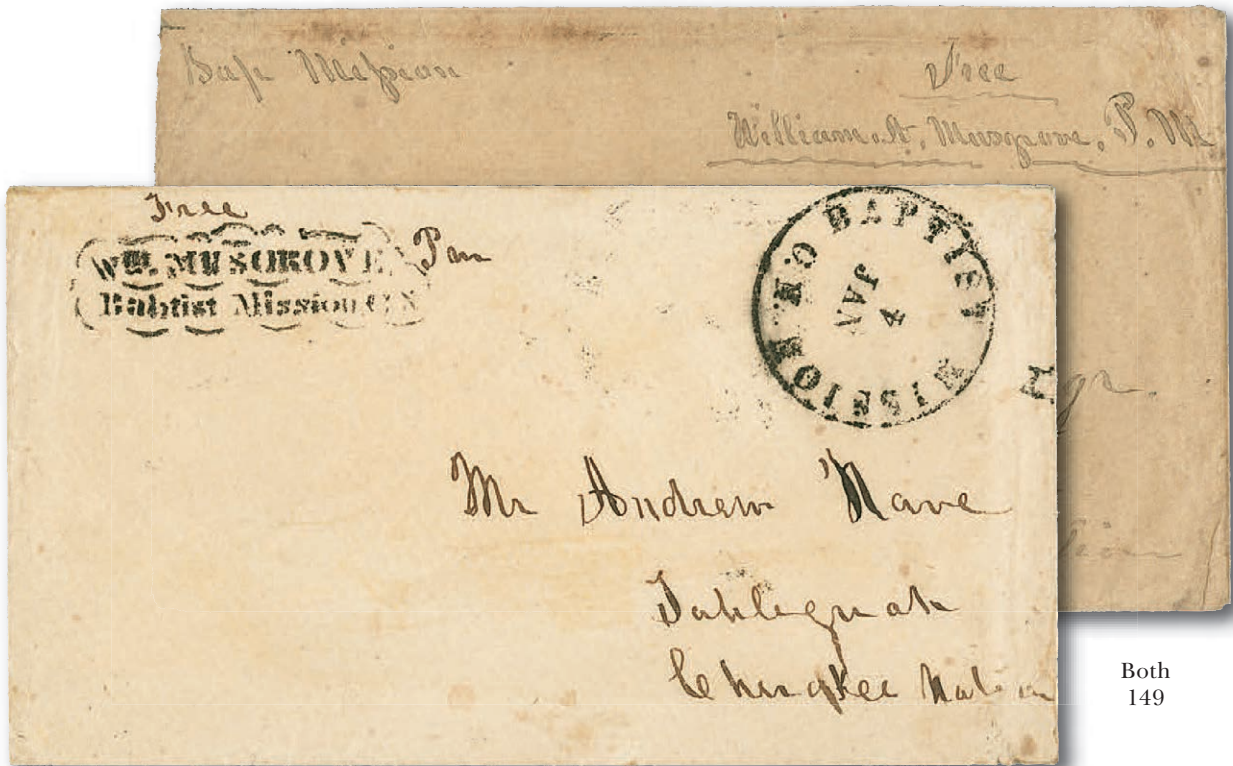 Bap Mission Free
William A. Musgrove, P. M
Free
Wm. MUSGROVE Pm
Baptist Mission C.N
BAPTIST MISSION CK. NO
JAN
4
Mr Andrew Nave
Tahlequah
Cherokee Nation
Both
149